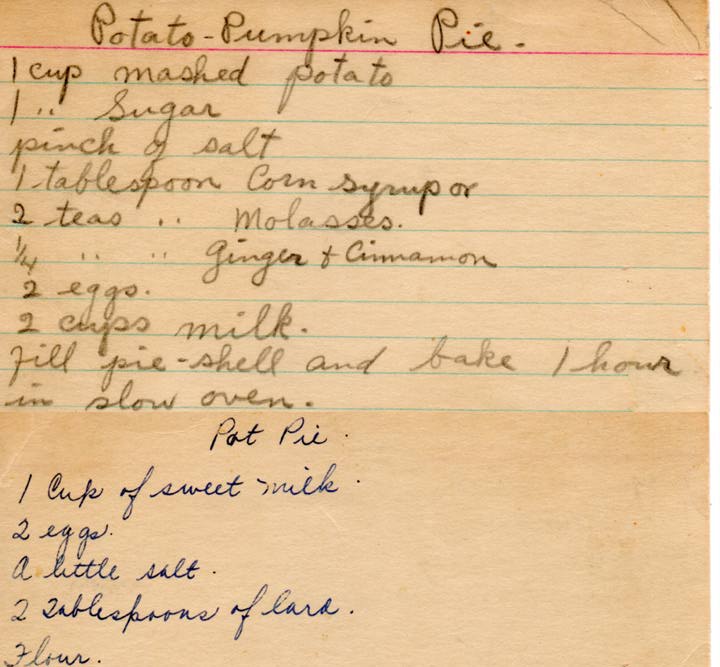 Potato-Pumpkin Pie.
1 cup mashed potato
1 " Sugar
pinch of salt
1 tablespoon Corn syrup or
2 teas " Molasses.
1/4 " " Ginger & Cinnamon
2 eggs.
2 cups milk.
Fill pie-shell and bake 1 hour
in slow oven.
Pot Pie.
1 Cup of sweet milk.
2 eggs.
A little salt.
2 Tablespoons of lard.
Flour.